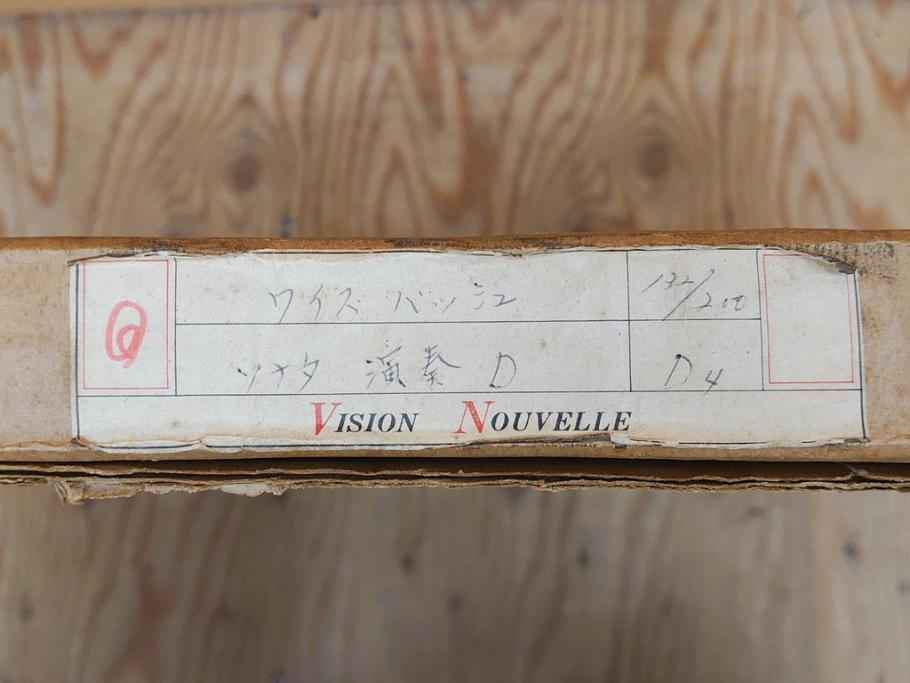 ワイズ バッシュ 132/200
ソナタ 演奏 D D4
VISION NOUVELLE